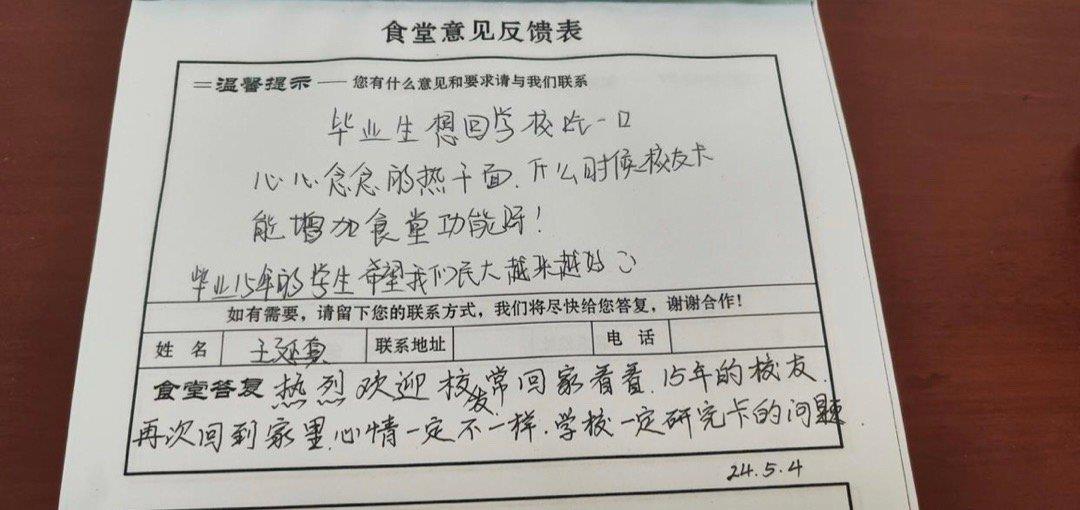 食堂意见反馈表
温馨提示——您有什么意见和要求请与我们联系
毕业生想回学校吃一口
心心念念的热干面，什么时候校友卡
能增加食堂功能呀！
毕业15年的学生希望我们民大越来越好
如有需要，请留下您的联系方式，我们将尽快给您答复，谢谢合作！
姓 名 联系地址 电 话
食堂答复 热烈欢迎校友常回家看看，15年的校友，
再次回到家里，心情一定不一样，学校一定研究卡的问题
24.5.4